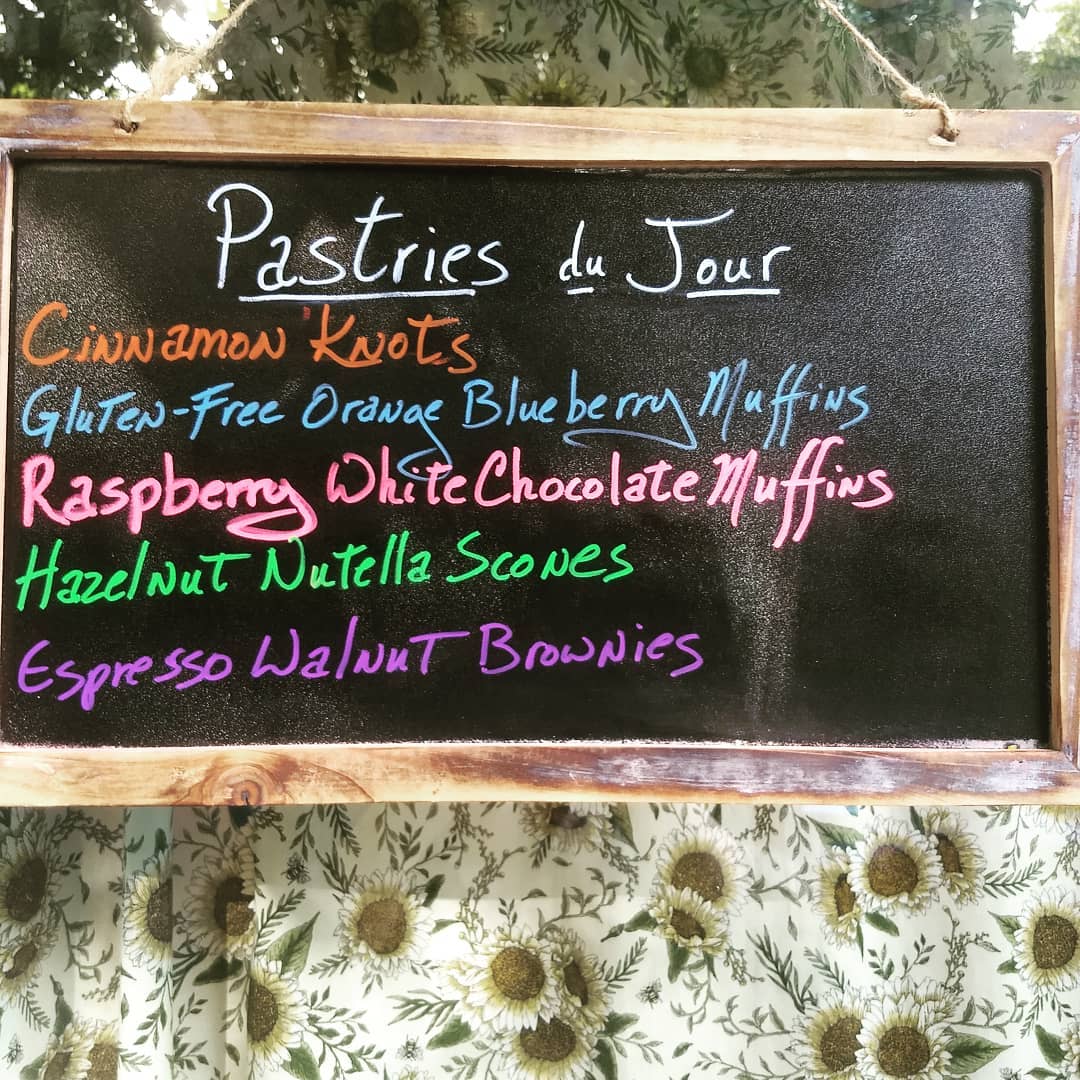 Pastries du Jour
Cinnamon Knots
Gluten-Free Orange Blueberry Muffins
Raspberry White Chocolate Muffins
Hazelnut Nutella Scones
Espresso Walnut Brownies